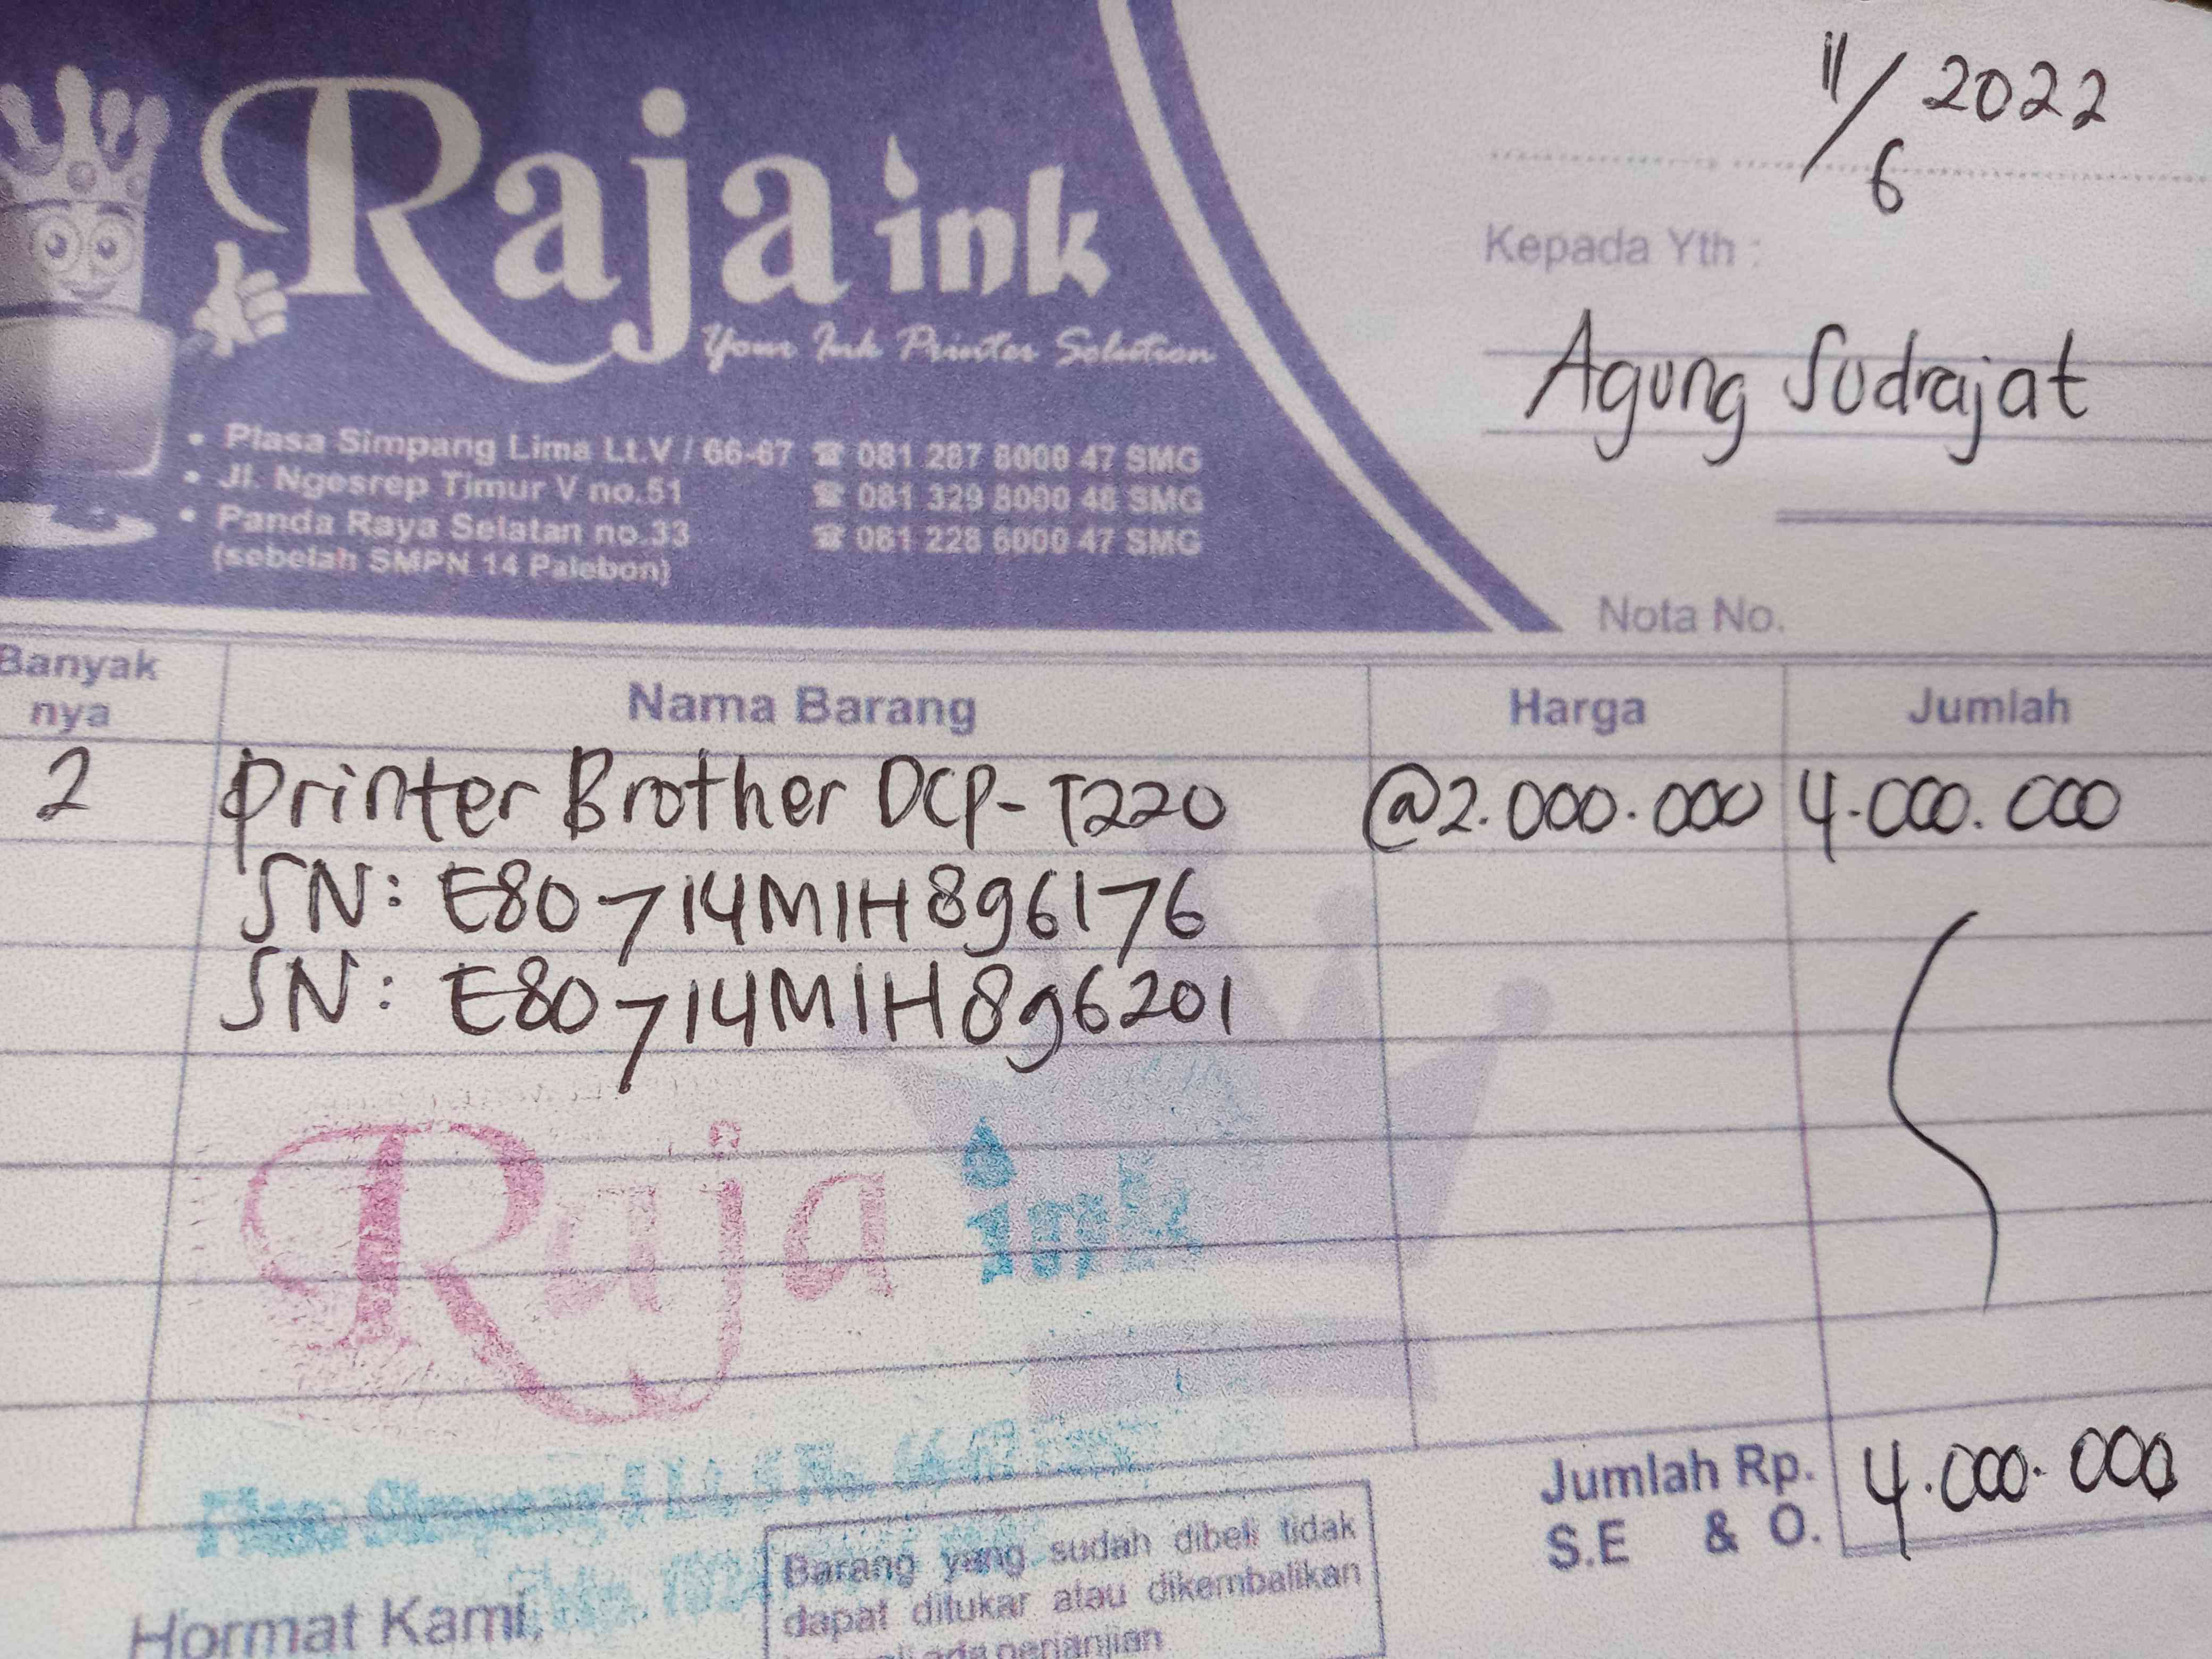 Raja ink
Your Ink Printer Solution
• Plasa Simpang Lima Lt.V / 66-67 ☎ 081 287 8000 47 SMG
• Jl. Ngesrep Timur V no.51 ☎ 081 329 8000 48 SMG
• Panda Raya Selatan no.33 ☎ 081 228 6000 47 SMG
(sebelah SMPN 14 Palebon)
11/6 2022
Kepada Yth :
Agung Sudrajat
Nota No.
Banyak nya Nama Barang Harga Jumlah
2 Printer Brother DCP-T220 @2.000.000 4.000.000
SN: E80714M1H896176
SN: E80714M1H896201
Raja ink
Jumlah Rp. 4.000.000
S.E & O.
Hormat Kami,
Barang yang sudah dibeli tidak
dapat ditukar atau dikembalikan
perjanjian